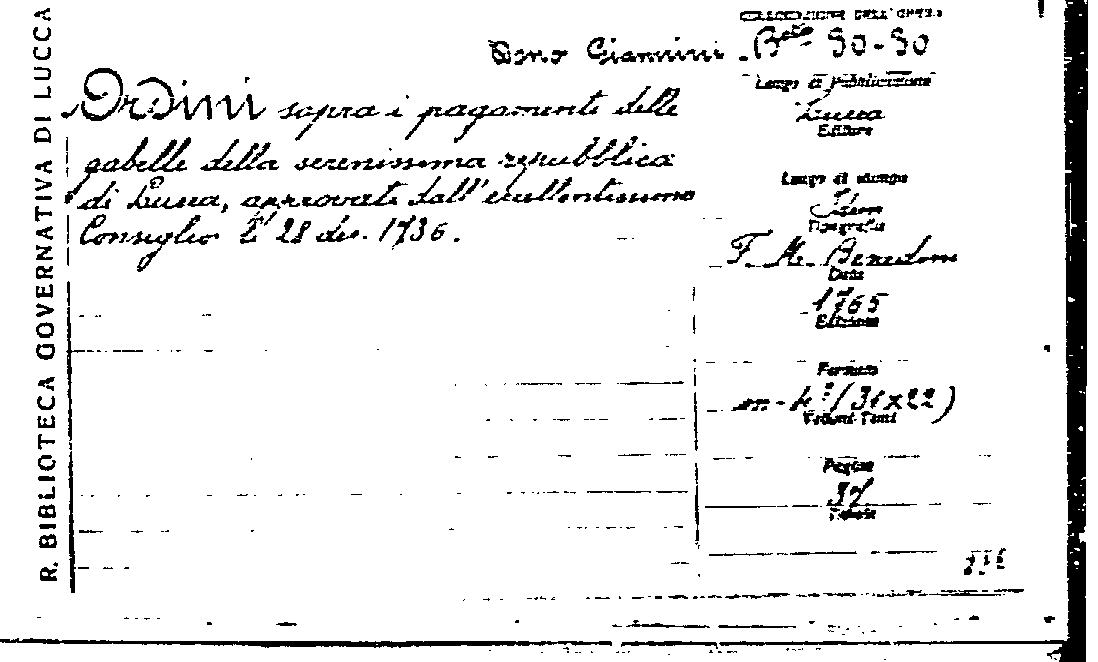 R. BIBLIOTECA GOVERNATIVA DI LUCCA
COLLOCAZIONE DELL'OPERA
Dono Giannini - B.ta 90-90
Ordini sopra i pagamenti delle
gabelle della serenissima repubblica
di Lucca, approvati dall'eccellentissimo
Consiglio li 28 dic. 1736.
Luogo di Pubblicazione
Lucca
Editore
Luogo di stampa
Idem
Tipografia
F. M. Benedini
Data
1765
Edizione
Formato
in-4º (31x22)
Volumi-Tomi
Pagine
37